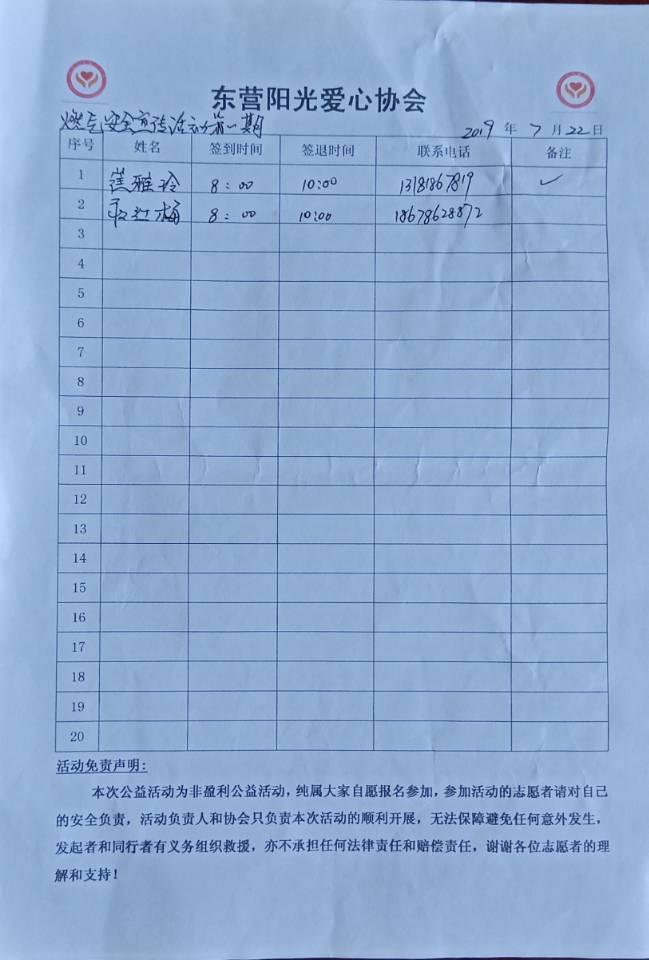 东营阳光爱心协会
燃气安全宣传活动第一期
2019 年 7 月 22 日
序号 姓名 签到时间 签退时间 联系电话 备注
1 雅玲 8:00 10:00 13181867819 ✓
2 红梅 8:00 10:00 18678628872
3
4
5
6
7
8
9
10
11
12
13
14
15
16
17
18
19
20
活动免责声明:
本次公益活动为非盈利公益活动，纯属大家自愿报名参加，参加活动的志愿者请对自己
的安全负责，活动负责人和协会只负责本次活动的顺利开展，无法保障避免任何意外发生，
发起者和同行者有义务组织救援，亦不承担任何法律责任和赔偿责任，谢谢各位志愿者的理
解和支持！